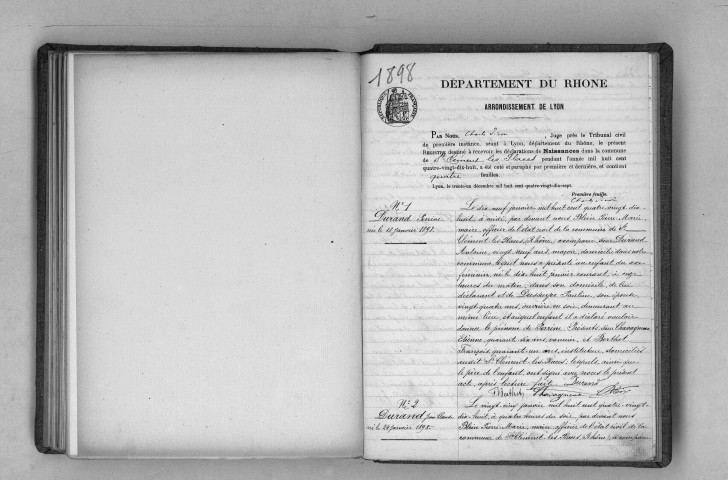 1898
DÉPARTEMENT DU RHONE
ARRONDISSEMENT DE LYON
PAR NOUS, Juge près le Tribunal civil
de première instance, séant à Lyon, département du Rhône, le présent
REGISTRE destiné à recevoir les déclarations de Naissances dans la commune
de St Clément les Places pendant l'année mil huit cent
quatre-vingt-dix-huit, a été coté et paraphé par première et dernière, et contient
quatre feuilles.
Lyon, le trente-un décembre mil huit cent quatre-vingt-dix-sept.
Première feuille.
N° 1
Durand
né le 18 Janvier 1898.
Le dix neuf janvier mil huit cent quatre vingt-dix-
huit, à midi, par devant nous Blein Pierre Marie,
maire, officier de l'état civil de la commune de St
Clément-les-Places, Rhône, a comparu sieur Durand
Antoine, vingt neuf ans, maçon, domicilié dans cette
commune, lequel nous a présenté un enfant du sexe
féminin, né le dix huit janvier courant, à onze
heures du matin, dans son domicile, de lui
déclarant et de Pauline, son épouse
vingt-quatre ans, ouvrière en soie, demeurant au
même lieu, et auquel enfant il a déclaré vouloir
donner le prénom de Présents, sieur Chavagneux
Etienne, quarante dix ans, et Berthet
François, quarante un ans, instituteur, domiciliés
audit St Clément-les-Places, lesquels, ainsi que
le père de l'enfant, ont signé avec nous le présent
acte, après lecture faite. Durand
Berthet Chavagneux Blein
N° 2
Durand Jean Claude
né le 24 Janvier 1898.
Le vingt-cinq janvier mil huit cent quatre-vingt-
dix-huit, à quatre heures du soir, par devant nous
Blein Pierre Marie, maire, officier de l'état civil de la
commune de St Clément-les-Places, Rhône, a comparu